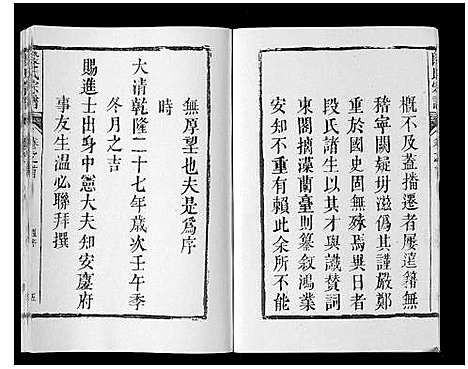 概不及蓋播遷者屢蓬籍無
稽寧闕疑毋滋偽其謹嚴鄭
重於國史固無殊焉異日
段氏諸生以其才與識贊詞
東閣摛藻蘭臺則纂敘鴻業
安知不重有賴此余所不能
無厚望也夫是爲序
時
大清乾隆二十七年歲次壬午季
冬月之吉
賜進士出身中憲大夫知安慶府
事友生溫必聯拜撰
段氏宗譜
卷之首
五